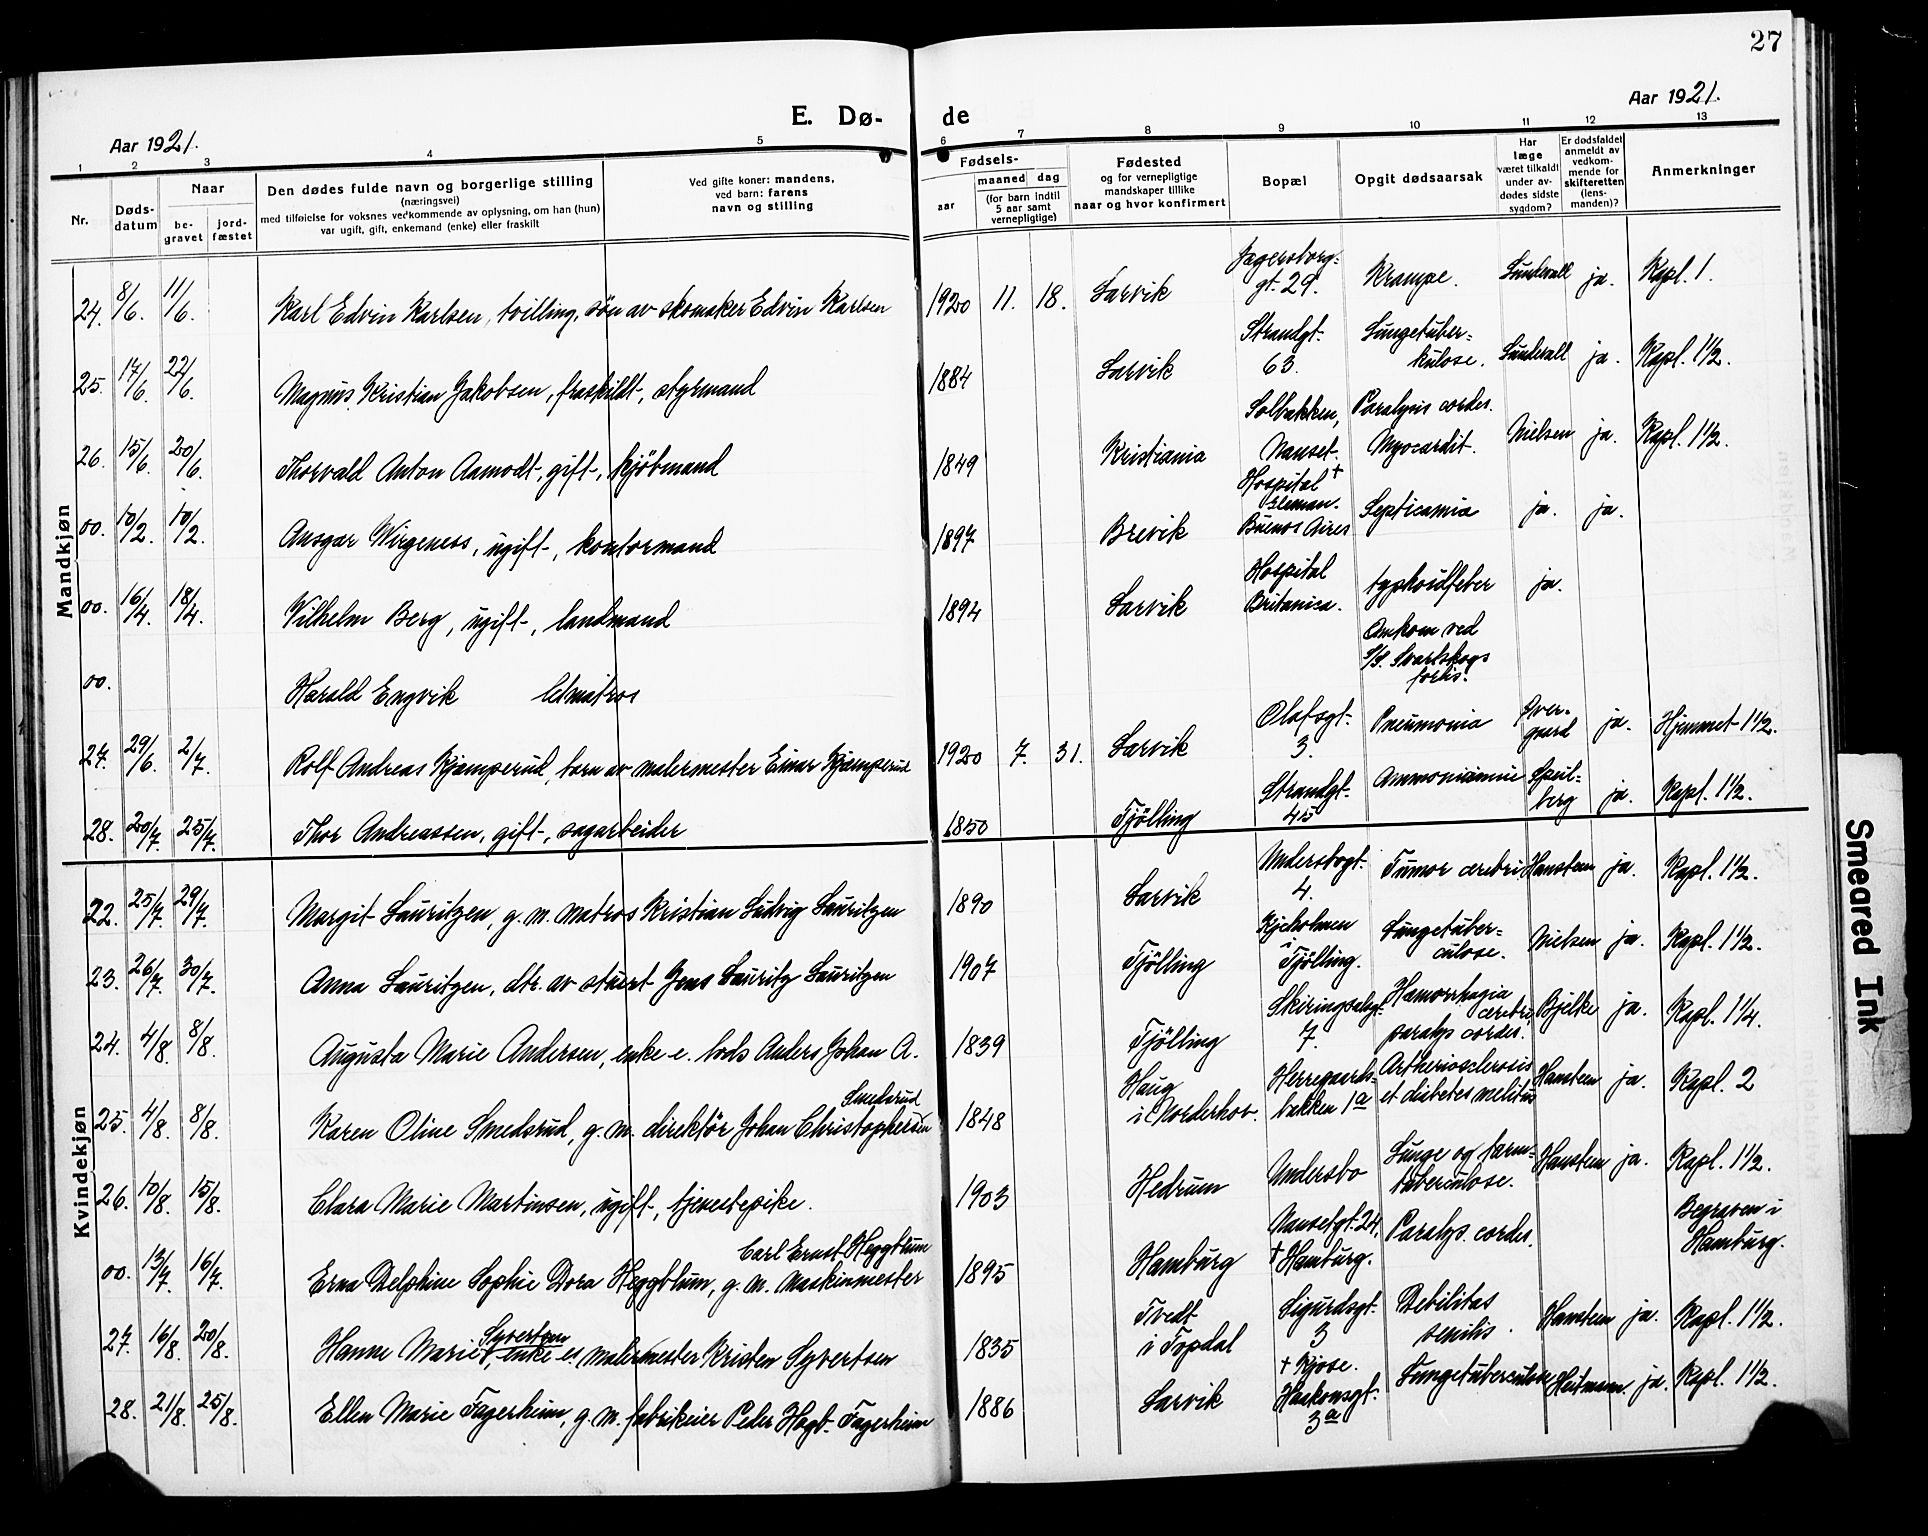 27
E. Dø- de
Aar 1921.
Aar 1921.
1 2 3 4 5 6 7 8 9 10 11 12 13
Nr.
Døds-
datum
Naar
be-
gravet
jord-
fæstet
Den dødes fulde navn og borgerlige stilling
(næringsvei)
med tilføielse for voksnes vedkommende av oplysning, om han (hun)
var ugift, gift, enkemand (enke) eller fraskilt
Ved gifte koner: mandens,
ved barn: farens
navn og stilling
Fødsels-
aar
maaned dag
(for barn indtil
5 aar samt
vernepligtige)
Fødested
og for vernepligtige
mandskaper tillike
naar og hvor konfirmert
Bopæl
Opgit dødsaarsak
Har
læge
været tilkaldt
under av-
dødes sidste
sygdom?
Er dødsfaldet
anmeldt av
vedkom-
mende for
skifteretten
(lens-
manden)?
Anmerkninger
Mandkjøn
24. 8/6. 11/6. Karl Edvin Karlsen, tvilling, søn av skomaker Edvin Karlsen 1920 11. 18. Larvik Jegersborg-
gt. 29. Krampe. Lundevall ja. Kapl. 1.
25. 17/6. 22/6. Magnus Kristian Jakobsen, fraskildt, styrmand 1884 Larvik Strandgt.
63. Lungetuber-
kulose. Lundevall ja. Kapl. 1 1/2.
26. 15/6. 20/6. Thorvald Anton Aamodt, gift, kjøbmand 1849 Kristiania Solbakken,
Nanset. Paralysis cordes.
Myocardit. Nielsen ja. Kapl. 1 1/2.
00. 10/2. 10/2. Ansgar Wirgeness, ugift, kontormand 1897 Brevik Hospital †
Aleman.
Buenos Aires Septicamia ja. ja.
00. 16/4. 18/4. Vilhelm Berg, ugift, landmand 1894 Larvik Hospital
Britanica. typhoidfeber ja.
00. Harald Engvik letmatros Omkom ved
S/S. Svartskogs
forlis.
27. 29/6. 2/7. Rolf Andreas Kjæmperud, barn av malermester Einar Kjæmperud 1920 7. 31. Larvik Olafsgt.
3. Pneumonia Øver-
gaard ja. Hjemmet 1 1/2.
28. 20/7. 25/7. Thor Andreassen, gift, sagarbeider 1850 Tjølling Strandgt.
45 Ammoniæmie Speil-
berg ja. Kapl. 1 1/2.
Kvindekjøn
22. 25/7. 29/7. Margit Lauritzen, g. m. matros Kristian Ludvig Lauritzen 1890 Larvik Undersbogt.
4. Tumor cerebri Hansteen ja. Kapl. 1 1/2.
23. 26/7. 30/7. Anna Lauritzen, dtr. av stuert Jens Lauritz Lauritzen 1907 Tjølling Kjeholmen
i Tjølling. Lungetuber-
culose. Nielsen ja. Kapl. 1 1/2.
24. 4/8. 8/8. Augusta Marie Andersen, enke e. lods Anders Johan A. 1839 Tjølling Skiringsalsgt.
7. Hæmorrhagia
cerebri,
paralys cordes. Bjelke ja. Kapl. 1 1/4.
25. 4/8. 8/8. Karen Oline Smedsrud, g. m. direktør Johan Christophersen Smedsrud 1848 Haug
i Norderhov. Herregaards-
bakken 1a Artheriosclerosis
et diabetes melitus Hansteen ja. Kapl. 2
26. 10/8. 15/8. Clara Marie Martinsen, ugift, tjenestepike. 1903 Hedrum Undersbo Lunge og tarm-
tuberculose. Hansteen ja. Kapl. 1 1/2.
00. 13/7. 16/7. Erna Delphine Sophie Dora Heggblum, g. m. maskinmester Carl Ernst Heggblum 1895 Hamburg Nansetgt. 24,
† Hamburg. Paralys. cordes. Begraven i
Hamburg.
27. 16/8. 20/8. Hanne Marie Syvertsen, enke e. malermester Kristen Syvertsen 1835 Tvedt
i Topdal Sigurdsgt.
3 Debilitas
senilis. Hansteen ja. Kapl. 1 1/2.
28. 21/8. 25/8. Ellen Marie Fagerheim, g. m. fabrikeier Peder Hagb. Fagerheim 1886 Larvik † Kjose.
Haakonsgt.
3a Lungetuberculose Heitmann ja. Kapl. 1 1/2.
Smeared Ink